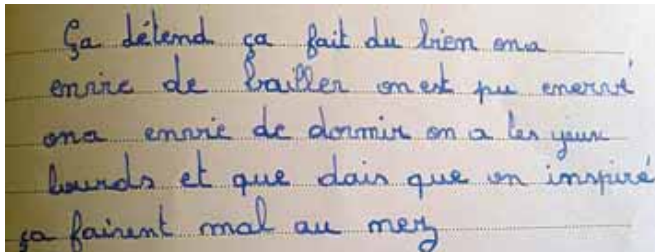 Ça détend ça fait du bien ona
envie de bailler on est pu enervé
ona envie de dormir on a les yeux
lourds et que dais que on inspiré
ça faisent mal au nez